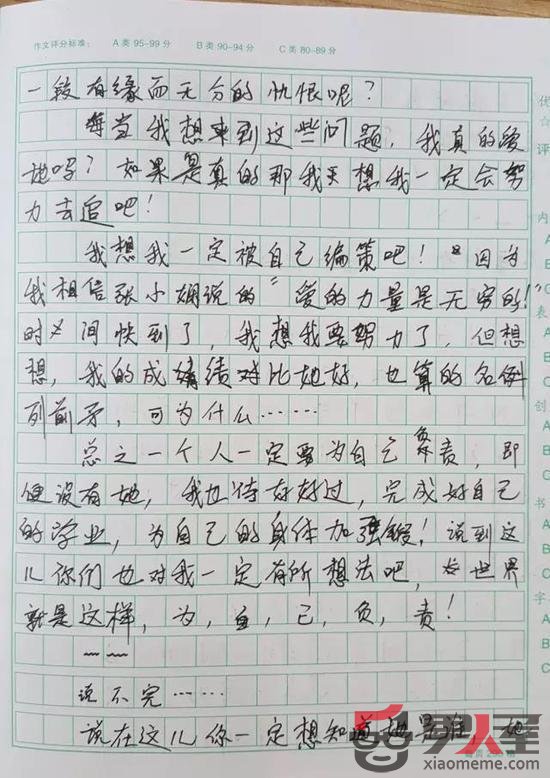 作文评分标准： A类 95-99分 B类 90-94分 C类 80-89分
一段有缘而无分的仇恨呢？
每当我想来到这些问题，我真的爱
她吗？如果是真的那我天想我一定会努
力去追吧！
我想我一定被自己编策吧！因为
我相信张小娴说的“爱的力量是无穷的！”
时间快到了，我想我要努力了，但想
想，我的成绩对比她好，也算的名例
列前矛，可为什么……
总之一个人一定要为自己负责，即
便没有她，我也待好好过，完成好自己
的学业，为自己的身体加强锻！说到这
儿你们也对我一定有所想法吧，世界
就是这样，为，自，己，负，责！
~~ ~~
说不完……
说在这儿你一定想知道她是谁，她
优
☆
评
内
A
B
C
表
A
B
C
创
A
B
C
书
A
B
字
A
B
C
男人窝
xiaomeme.com